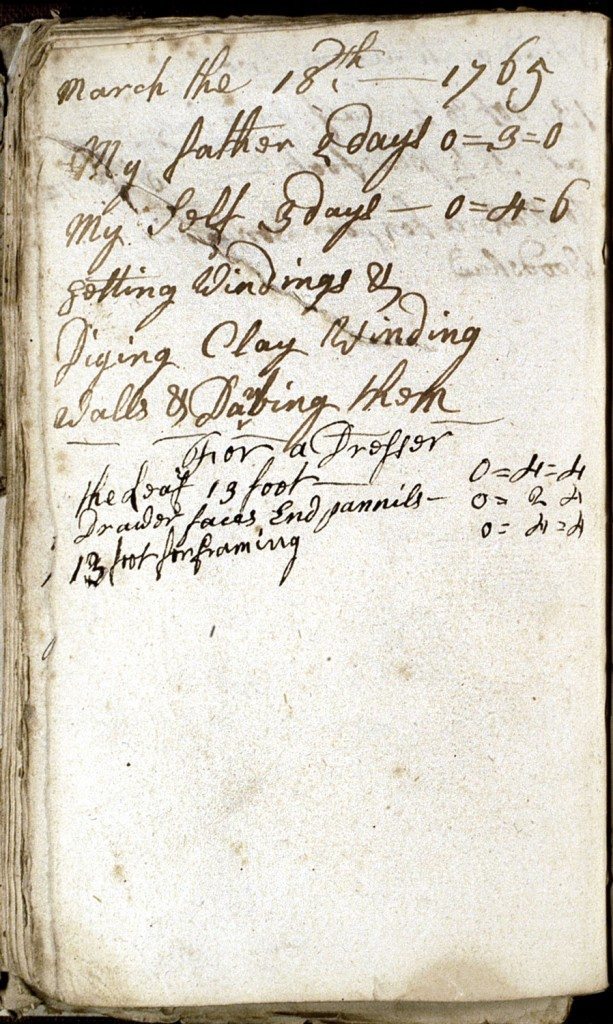 March the 18th — 1765
My father 2 days 0=3=0
My Self 3 days — 0=4=6
getting Windings &
Diging Clay Winding
Walls & Dawbing them
For a Dresser
the Leaf 13 foot — 0=4=4
Drawer faces End pannils — 0= 2 4
13 foot for framing 0= 4=4